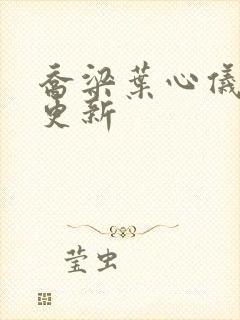 乔梁叶心仪
更新
莹虫